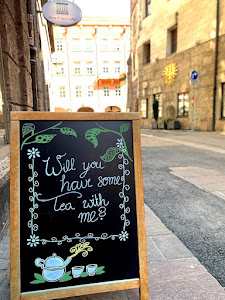 Will you
have some
Tea with
me?